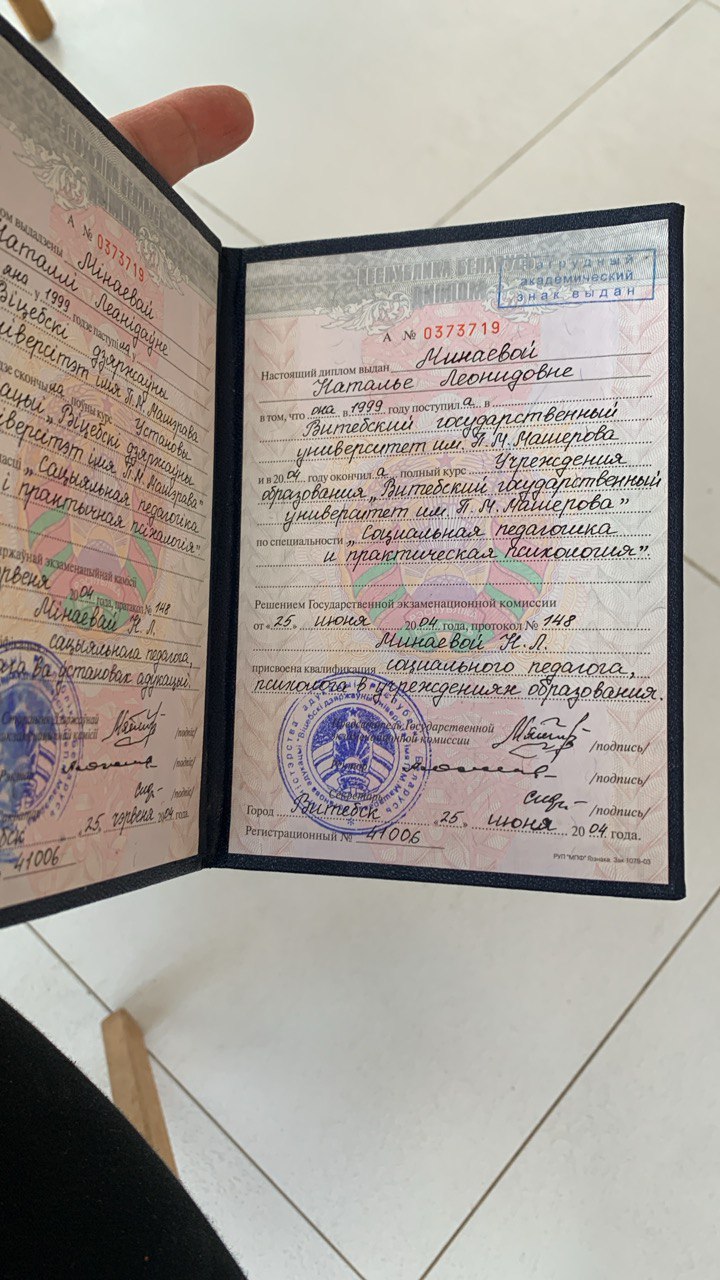 А № 0373719
Мінаевай
Наталлі Леанідаўне
ана у 1999 годзе паступіла у
Віцебскі дзяржаўны
ўніверсітэт імя П.М. Машэрава
поўны курс Установы
адукацыі „Віцебскі дзяржаўны
ўніверсітэт імя П.М. Машэрава”
„Сацыяльная педагогіка
і практычная псіхалогія”
Дзяржаўнай экзаменацыйнай камісіі
чэрвеня 2004 года, пратакол № 148
Мінаевай Н.Л.
сацыяльнага педагога,
псіхолага ва установах адукацыі.
/подпіс/
/подпіс/
/подпіс/
«25» чэрвеня 2004 г.
41006
РЕСПУБЛИКА БЕЛАРУСЬ
ДИПЛОМ
нагрудный
академический
знак выдан
А № 0373719
Настоящий диплом выдан Минаевой
Наталье Леонидовне
в том, что она в 1999 году поступила в
Витебский государственный
университет им. П.М. Машерова
и в 2004 году окончила полный курс Учреждения
образования „Витебский государственный
университет им. П.М. Машерова”
по специальности „Социальная педагогика
и практическая психология”
Решением Государственной экзаменационной комиссии
от «25» июня 2004 года, протокол № 148
Минаевой Н.Л.
присвоена квалификация социального педагога,
психолога в учреждениях образования.
Председатель Государственной
экзаменационной комиссии /подпись/
Ректор /подпись/
Секретарь /подпись/
Город Витебск «25» июня 2004 года.
Регистрационный № 41006
РУП "МПФ" Гознака. Зак 1078-03